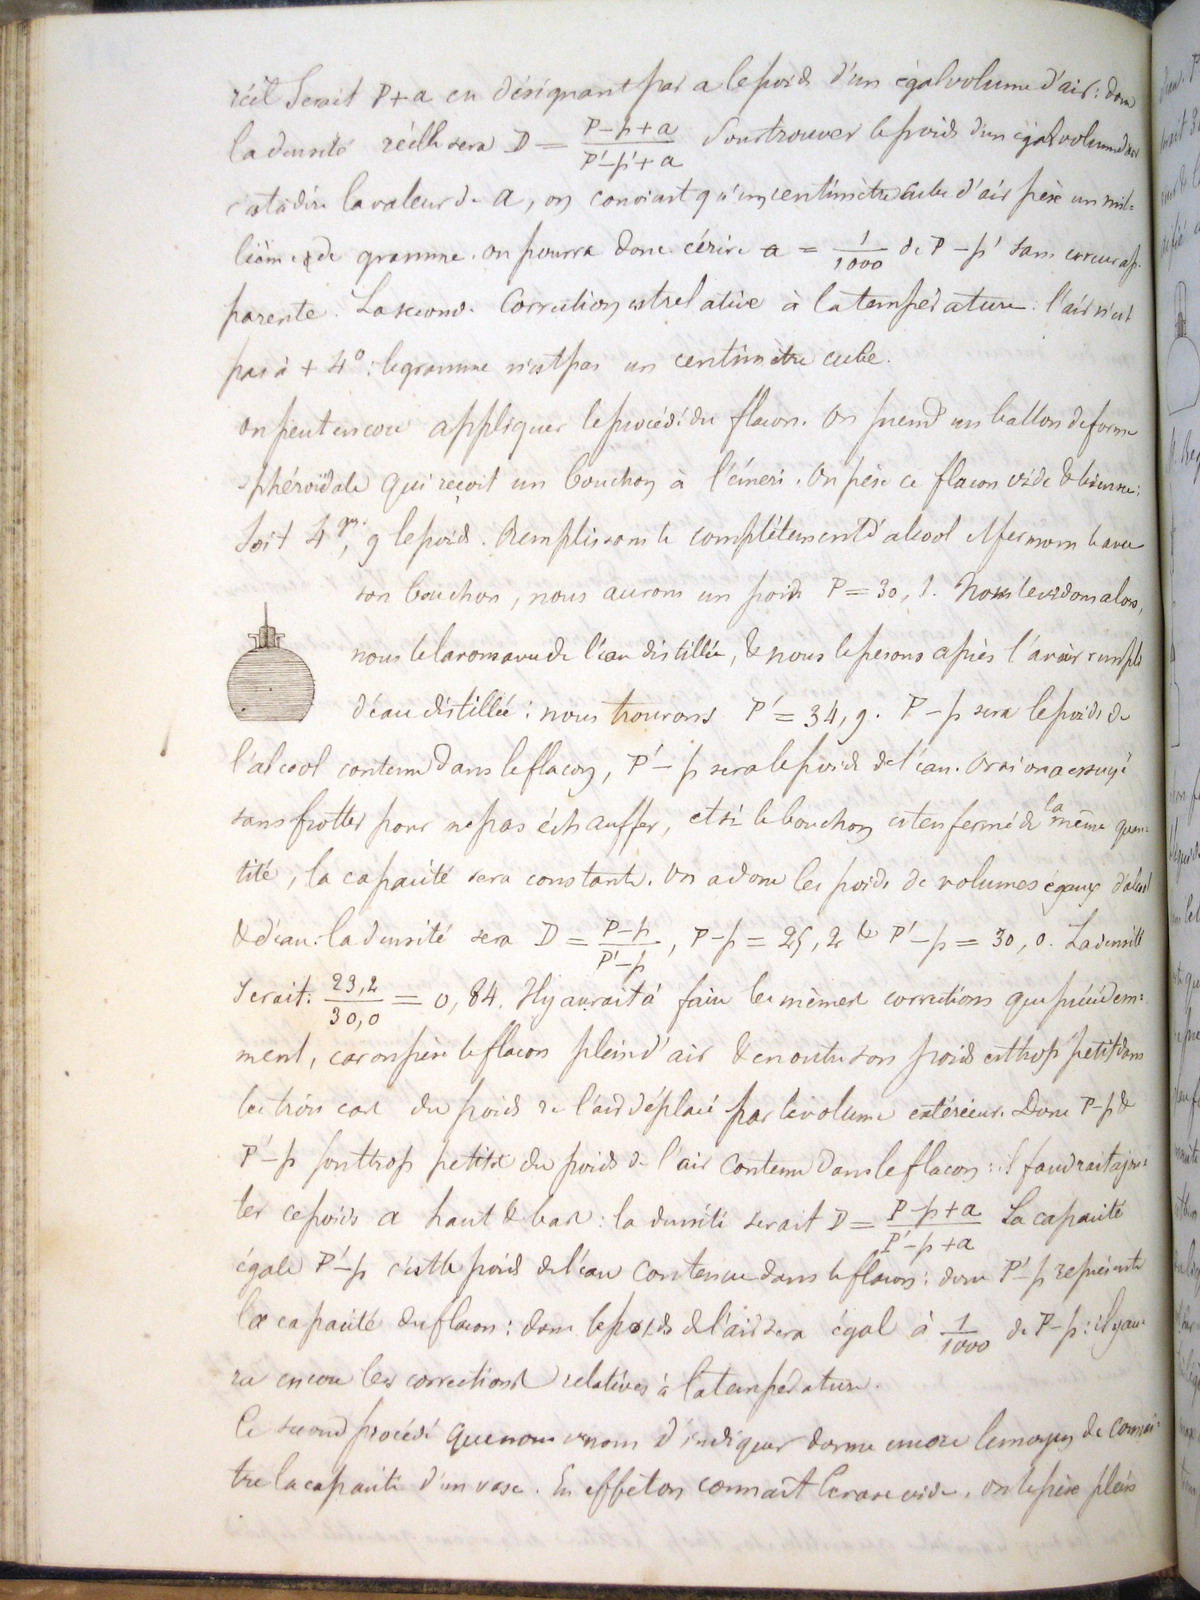 réel serait P+a en désignant par a le poids d'un égal volume d'air : donc
la densité réelle sera D = P-p+a / P'-p'+a Pour trouver le poids d'un égal volume d'air
c'est à dire la valeur de a, on convient qu'un centimètre cube d'air pèse un mil=
lième de gramme. on pourra donc écrire a = 1/1000 de P-p' sans erreur ap=
parente. La seconde correction est relative à la température : l'air n'est
pas à + 4° : le gramme n'est pas un centimètre cube.
On peut encore appliquer le procédé du flacon. On prend un ballon de forme
sphéroïdale qui reçoit un bouchon à l'émeri. On pèse ce flacon vide &
Soit 4gr, 9 le poids. Remplissons le complètement d'alcool & fermons le avec
son bouchon, nous aurons un poids P = 30, 1. Nous le vidons alors,
nous le lavons avec de l'eau distillée, & nous le pesons après l'avoir rempli
d'eau distillée : nous trouvons P' = 34, 9. P-p sera le poids de
l'alcool contenu dans le flacon, P'-p sera le poids de l'eau. Or si on a essuyé
sans frotter pour ne pas échauffer, et si le bouchon est enfermé de la même quan=
tité, la capacité sera constante. On a donc les poids de volumes égaux d'alcool
& d'eau : la densité sera D = P-p / P'-p, P-p = 25, 2 & P'-p = 30, 0. La densité
serait. 23,2 / 30,0 = 0, 84. Il y aurait à faire les mêmes corrections que précédem=
ment, car on pèse le flacon plein d'air & en outre son poids est trop petit dans
les trois cas du poids de l'air déplacé par le volume extérieur. Donc P-p &
P'-p sont trop petits du poids de l'air contenu dans le flacon : il faudrait ajou=
ter ce poids a haut & bas : la densité serait D = P-p+a / P'-p+a La capacité
égale P'-p c'est le poids de l'eau contenue dans le flacon : donc P'-p représente
la capacité du flacon : donc le poids de l'air sera égal à 1/1000 de P-p : il y au=
ra encore les corrections relatives à la température.
Ce second procédé que nous venons d'indiquer donne encore le moyen de connaî=
tre la capacité d'un vase. En effet on connait le vase vide, on le pèse plein